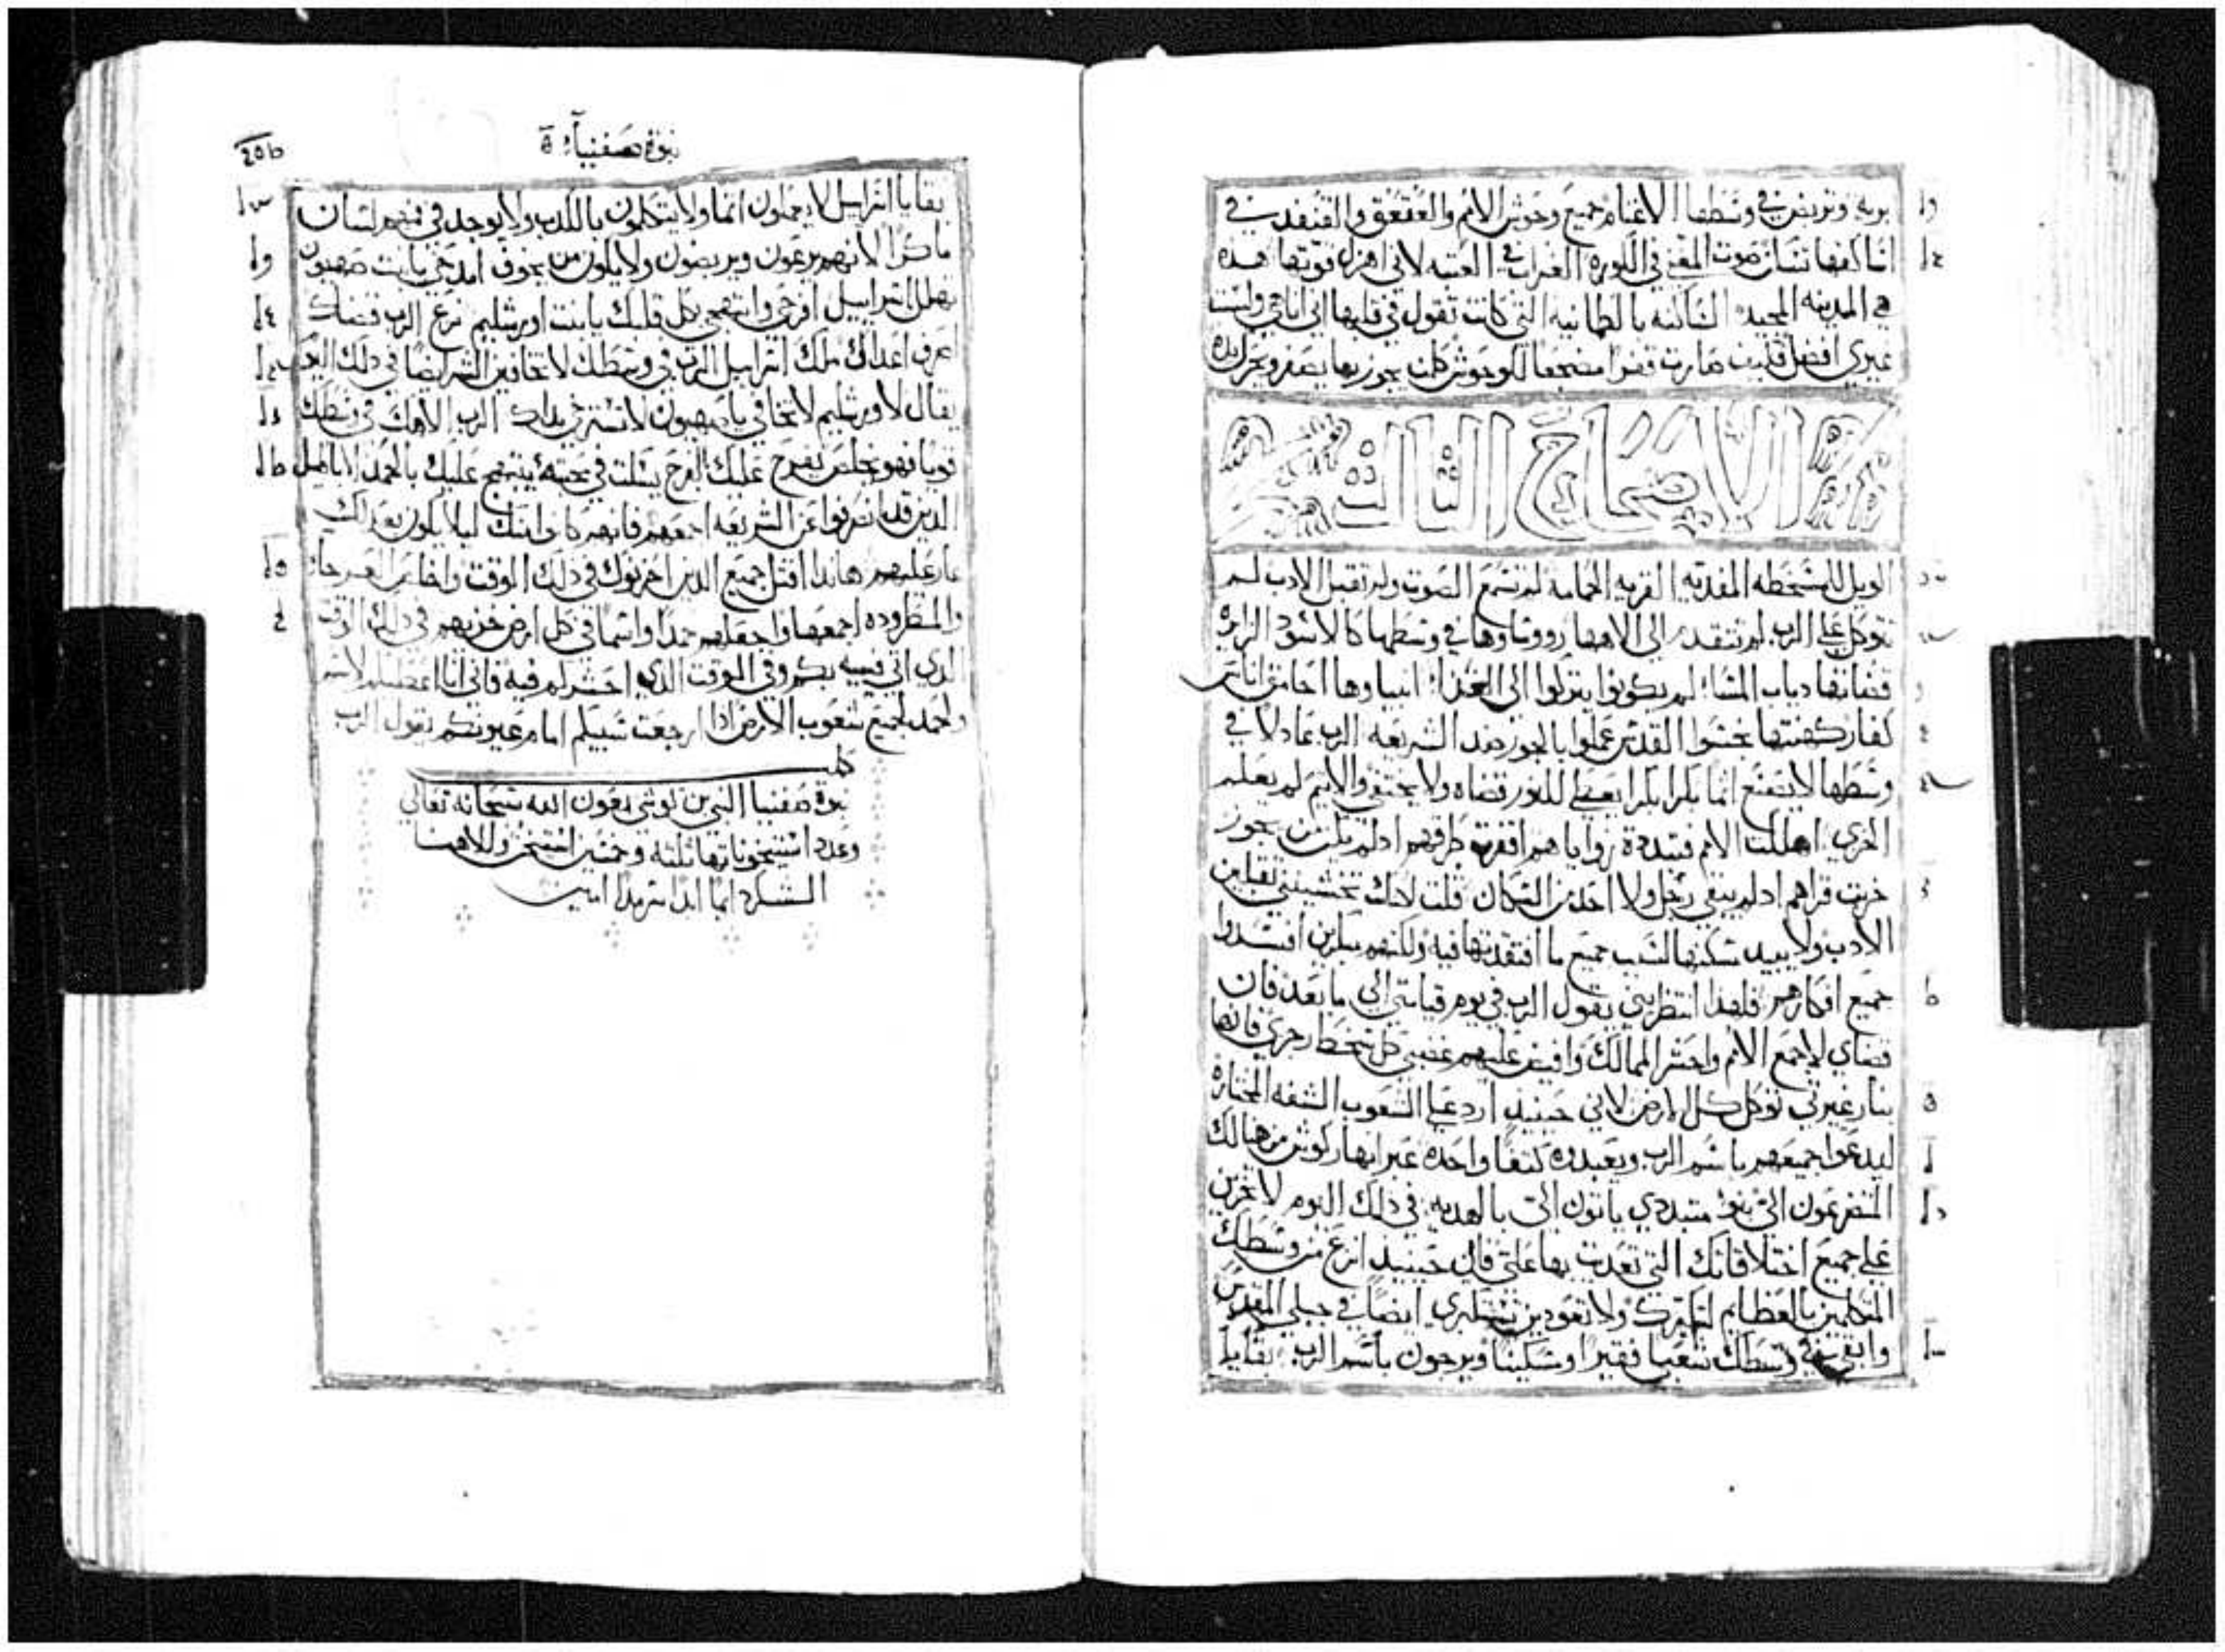 بريه وتربض في وسطها الاغنام جميع وحوش الامم والعقعق والقنفد في
اساكفها تبيتان صوت المغني في الكوره الغراب في العتبه لاني اهزل قوتها هده
هي المدينه المجيده الساكنه بالطمانيه التي كانت تقول في قلبها اني انا هي وليست
غيري افضل فكيف صارت قفرا مضجعا للوحوش كلمن يجوز بها يصفر ويحرك يده
الاصحاح الثالث
الويل للمسخطه المفديه القريه الحمامه لم تسمع الصوت ولم تقبل الادب لم
تتوكل على الرب لم تتقدم الى الاهها رووساوها في وسطها كالاسود الزايره
قضاتها دياب المسا لم يكونوا يتركوا الى الغد انبياوها احامق اناس
كفار كهنتها نجسوا القدس عملوا بالجور ضد الشريعه الرب عادلا في
وسطها لا يصنع اثما بكرا بكرا يعطي للنور قضاه ولا يختفي والاثيم لم يعلم
الخزي اهلكت الامم فتبددة زواياهم اقفرة طرقهم ادلم يكن من يجوز
خربت قراهم ادلم يبقى رجل ولا احد من السكان قلت لكنك تخشيني تقبلين
الادب ولا يبيد مسكنها لسبب جميع ما افتقدتها فيه ولكنهم مبكرين افسدوا
جميع افكارهم فلهدا انتظريني يقول الرب في يوم قيامتي الى ما بعد فان
قضاي لاجمع الامم واحشر الممالك وافيض عليهم غضبي كل سخط رجزي فانها
بنار غيرتي توكل كل الارض لاني حينيد ارد على الشعوب الشفه المختاره
ليدعوا جميعهم باسم الرب ويعبدوه كتفا واحده عبر انهار كوش من هنالك
المتضرعون الي بنو متبددي ياتون الي بالهديه في دلك اليوم لا تخزين
على جميع اختلاقاتك التي تعديت بها علي فان حينيد انزع من وسطك
المتكلمين بالعظايم لتكبرك ولا تعودين تستكبري ايضا في جبلي المقدس
وابقي في وسطك شعبا فقيرا ومسكينا ويرجون باسم الرب بقايا
نبوة صفنيا
بقايا اسراييل لا يعملون اثما ولا يتكلمون بالكدب ولا يوجد في فمهم لسان
ماكرا لانهم يرعون ويربضون ولا يكون من يخوف امدحي يا بنت صهيون
تهلل اسراييل افرحي وابتهجي بكل قلبك يا بنت اورشليم نزع الرب قضاك
صرف اعداك ملك اسراييل الرب في وسطك لا تخافين الشر ايضا في دلك اليوم
يقال لاورشليم لا تخافي يا صهيون لا تسترخي يداك الرب الاهك في وسطك
قويا فهو يخلص يفرح عليك بفرح يسكت في محبته يبتهج عليك بالحمد الاباطيل
الدين قد انصرفوا عن الشريعه اجمعهم فانهم كانوا منك ليلا يكون بعد لك
عار عليهم هاندا اقتل جميع الدين احزنوك في دلك الوقت واخلص العرجا
والمطروده اجمعها واجعلهم حمدا واسما في كل ارض خزيهم في دلك الوقت
الدي اتي فيه بكم وفي الوقت الدي احشركم فيه فاني انا اعطيكم لاسم
ولحمد لجميع شعوب الارض ادا ارجعت سبيكم امام عيونكم يقول الرب
كملت
نبوة صفنيا النبي بن كوشي بعون الله سبحانه تعالى
وعدد استيخوناتها ثلثه وخمسين استيخن وللاهنا
الشكر دايما ابدا سرمدا امين